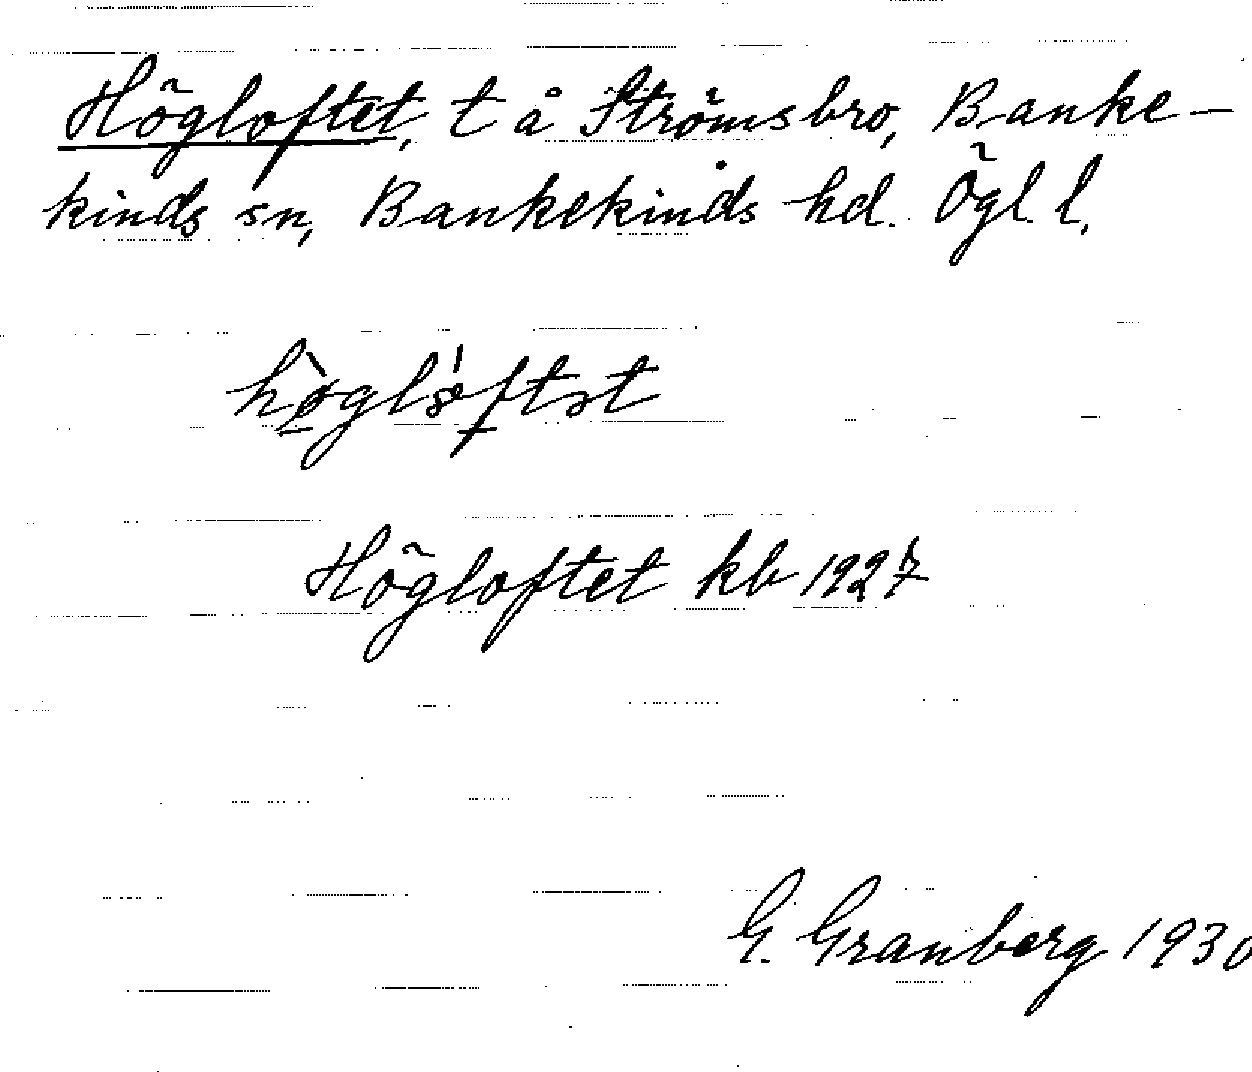 Högloftet, t å Strömsbro, Banke-
kinds sn, Bankekinds hd. Ögl l.
Högloftet kb 1927
G. Granberg 1930